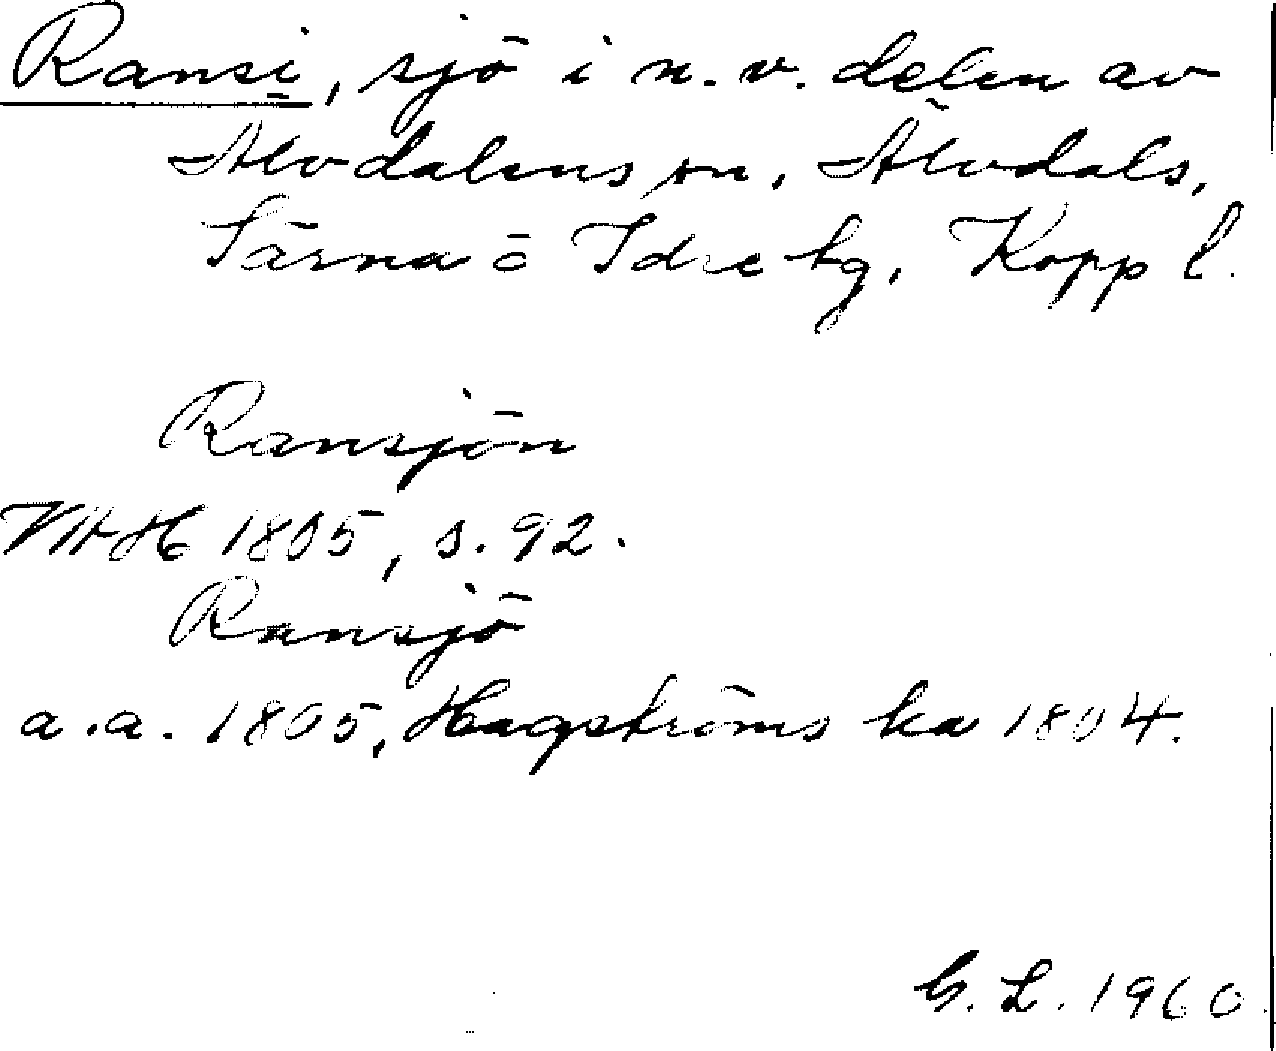 Ransi, sjö i n.v. delen av
Älvdalens sn, Älvdals,
Särna o Idre tg, Kopp l.
Ransjön
VAH 1805, s. 92.
Ransjö
a.a. 1805, Hagströms ka 1804.
G. L. 1960.